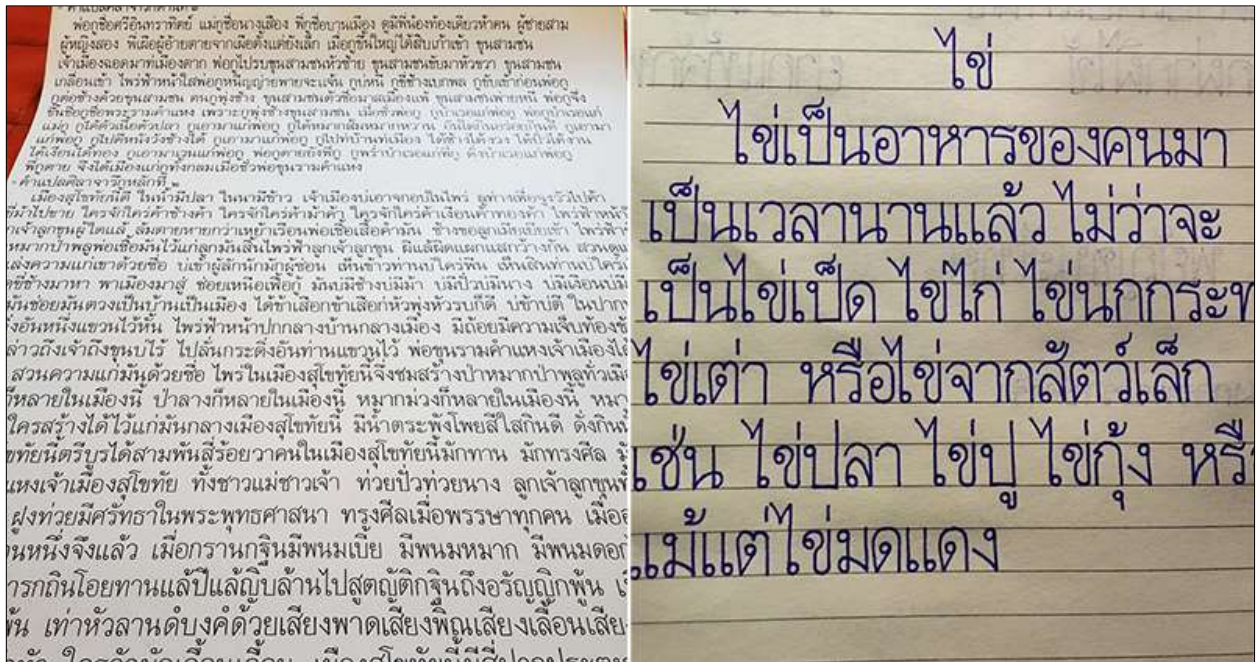 - คำแปลศิลาจารึกด้านที่ ๑
พ่อกูชื่อศรีอินทราทิตย์ แม่กูชื่อนางเสือง พี่กูชื่อบานเมือง ตูมีพี่น้องท้องเดียวห้าคน ผู้ชายสาม
ผู้หญิงสอง พี่เผือผู้อ้ายตายจากเผือตั้งแต่ยังเล็ก เมื่อกูขึ้นใหญ่ได้สิบเก้าเข้า ขุนสามชน
เจ้าเมืองฉอดมาท่เมืองตาก พ่อกูไปรบขุนสามชนหัวซ้าย ขุนสามชนขับมาหัวขวา ขุนสามชน
เกลื่อนเข้า ไพร่ฟ้าหน้าใสพ่อกูหนีญญ่ายพายจะแจ้น กูบ่หนี กูขี่ช้างเบกพล กูขับเข้าก่อนพ่อกู
กูต่อช้างด้วยขุนสามชน ตนกูพุ่งช้าง ขุนสามชนตัวชื่อมาสเมืองแพ้ ขุนสามชนพ่ายหนี พ่อกูจึง
ขึ้นชื่อกูชื่อพระรามคำแหง เพราะกูพุ่งช้างขุนสามชน เมื่อชั่วพ่อกู กูบำเรอแก่พ่อกู กูบำเรอแก่
แม่กู กูได้ตัวเนื้อตัวปลา กูเอามาแก่พ่อกู กูได้หมากส้มหมากหวาน อันใดกินอร่อยกินดี กูเอามา
แก่พ่อกู กูไปตีหนังวังช้างได้ กูเอามาแก่พ่อกู กูไปท่บ้านท่เมือง ได้ช้างได้งวง ได้ปั่วได้นาง
ได้เงือนได้ทอง กูเอามาเวนแก่พ่อกู พ่อกูตายยังพี่กู กูพร่ำบำเรอแก่พี่กู ดั่งบำเรอแก่พ่อกู
พี่กูตาย จึงได้เมืองแก่กูทั้งกลม เมื่อชั่วพ่อขุนรามคำแหง
- คำแปลศิลาจารึกหลักที่ ๒
เมืองสุโขทัยนี้ดี ในน้ำมีปลา ในนามีข้าว เจ้าเมืองบ่เอาจกอบในไพร่ ลูท่างเพื่อจูงวัวไปค้า
ขี่ม้าไปขาย ใครจักใคร่ค้าช้างค้า ใครจักใคร่ค้าม้าค้า ใครจักใคร่ค้าเงือนค้าทองค้า ไพร่ฟ้าหน้า
เจ้าลูกขุนผู้ใดแล้ ล้มตายหายกว่าเหย้าเรือนพ่อเชื้อเสื้อคำมัน ช้างขอลูกเมียเยียเข้า ไพร่ฟ้า
หมากป่าพลูพ่อเชื้อมันไว้แก่ลูกมันสิ้นไพร่ฟ้าลูกเจ้าลูกขุน ผิแล้ผิดแผกแสกว้างกัน สวนดู
แล่งความแก่เขาด้วยซื่อ บ่เข้าผู้ลักมักผู้ซ่อน เห็นข้าวท่านบ่ใคร่พีน เห็นสินท่านบ่ใคร่
ขี่ช้างมาหา พาเมืองมาสู่ ช่อยเหนือเฟื้อกู้ มันบ่มีช้างบ่มีม้า บ่มีปั่วบ่มีนาง บ่มีเงือนบ่มี
มันช่อยมันตวงเป็นบ้านเป็นเมือง ได้ข้าเสือกข้าเสือหัวพุ่งหัวรบก็ดี บ่ฆ่าบ่ตี ในปาก
อันหนึ่งแขวนไว้หั้น ไพร่ฟ้าหน้าปกกลางบ้านกลางเมือง มีถ้อยมีความเจ็บท้อง
กล่าวถึงเจ้าถึงขุนบ่ไร้ ไปลั่นกระดิ่งอันท่านแขวนไว้ พ่อขุนรามคำแหงเจ้าเมืองได้
สวนความแก่มันด้วยซื่อ ไพร่ในเมืองสุโขทัยนี้จึงชมสร้างป่าหมากป่าพลูทั่วเมือง
ก็หลายในเมืองนี้ ป่าลางก็หลายในเมืองนี้ หมากม่วงก็หลายในเมืองนี้
ใครสร้างได้ไว้แก่มันกลางเมืองสุโขทัยนี้ มีน้ำตระพังโพยสีใสกินดี ดั่งกิน
ขทัยนี้ตรีบูรได้สามพันสี่ร้อยวาคนในเมืองสุโขทัยนี้มักทาน มักทรงศีล
แหงเจ้าเมืองสุโขทัย ทั้งชาวแม่ชาวเจ้า ท่วยปั่วท่วยนาง ลูกเจ้าลูกขุน
ฝูงท่วยมีศรัทธาในพระพุทธศาสนา ทรงศีลเมื่อพรรษาทุกคน เมื่อ
หนึ่งจึงแล้ว เมื่อกรานกฐินมีพนมเบี้ย มีพนมหมาก มีพนมดอก
กถินโอยทานแล้ปีแล้ญิบล้านไปสูตญัติกฐินถึงอรัญญิกพู้น
เท่าหัวลานดำบงคํด้วยเสียงพาดเสียงพิณเสียงเลื้อนเสียง
ไข่
ไข่เป็นอาหารของคนมา
เป็นเวลานานแล้ว ไม่ว่าจะ
เป็นไข่เป็ด ไข่ไก่ ไข่นกกระท
ไข่เต่า หรือไข่จากสัตว์เล็ก
เช่น ไข่ปลา ไข่ปู ไข่กุ้ง หรื
แม้แต่ไข่มดแดง